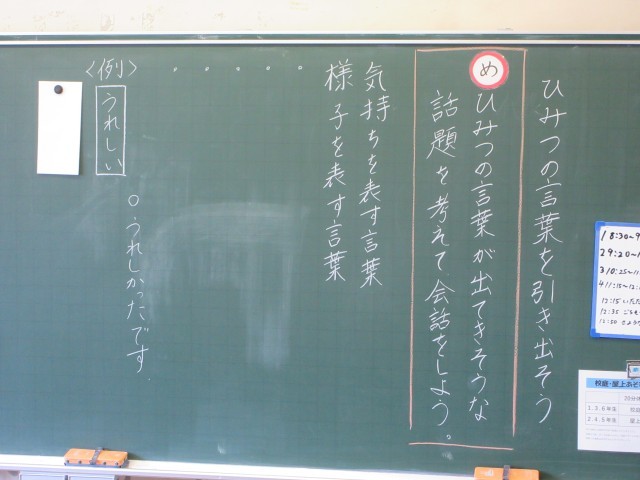 ひみつの言葉を引き出そう
め
ひみつの言葉が出てきそうな
話題を考えて会話をしよう。
気持ちを表す言葉
様子を表す言葉
・・・・・
〈例〉
うれしい
○うれしかったです。
18:30~9
29:20~1
310:25~11
411:15~12:
12:15
12:35
12:50
校庭・屋上
1.3.6年生
2.4.5年生